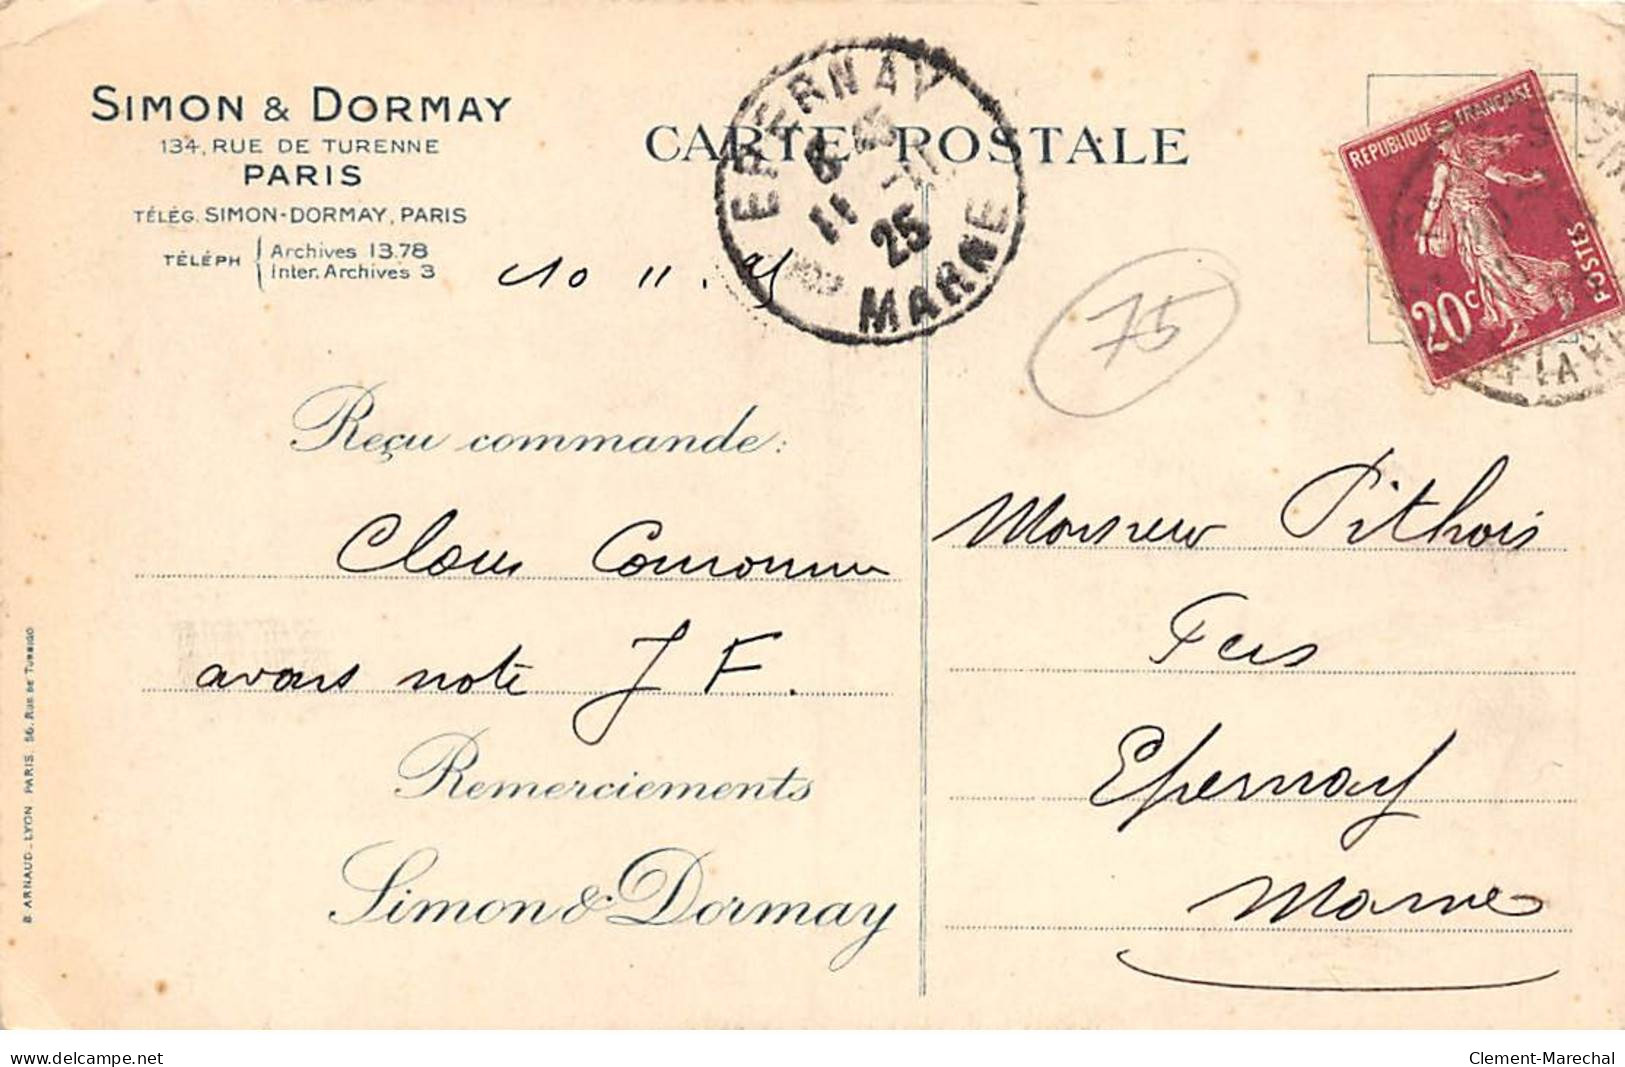 SIMON & DORMAY
134, RUE DE TURENNE
PARIS
TÉLÉG. SIMON-DORMAY, PARIS
TÉLÉPH { Archives 13.78
Inter. Archives 3
10 11. 25
CARTE POSTALE
EPERNAY
11 - 11
25
MARNE
75
REPUBLIQUE FRANÇAISE
POSTES
20c
Reçu commande:
Clous Couronne
avons note J F.
Remerciements
Simon & Dormay
Monsieur Pithois
Fers
Epernay
Marne
B. ARNAUD_LYON PARIS. 56, RUE DE TURBIGO
www.delcampe.net
Clement-Marechal